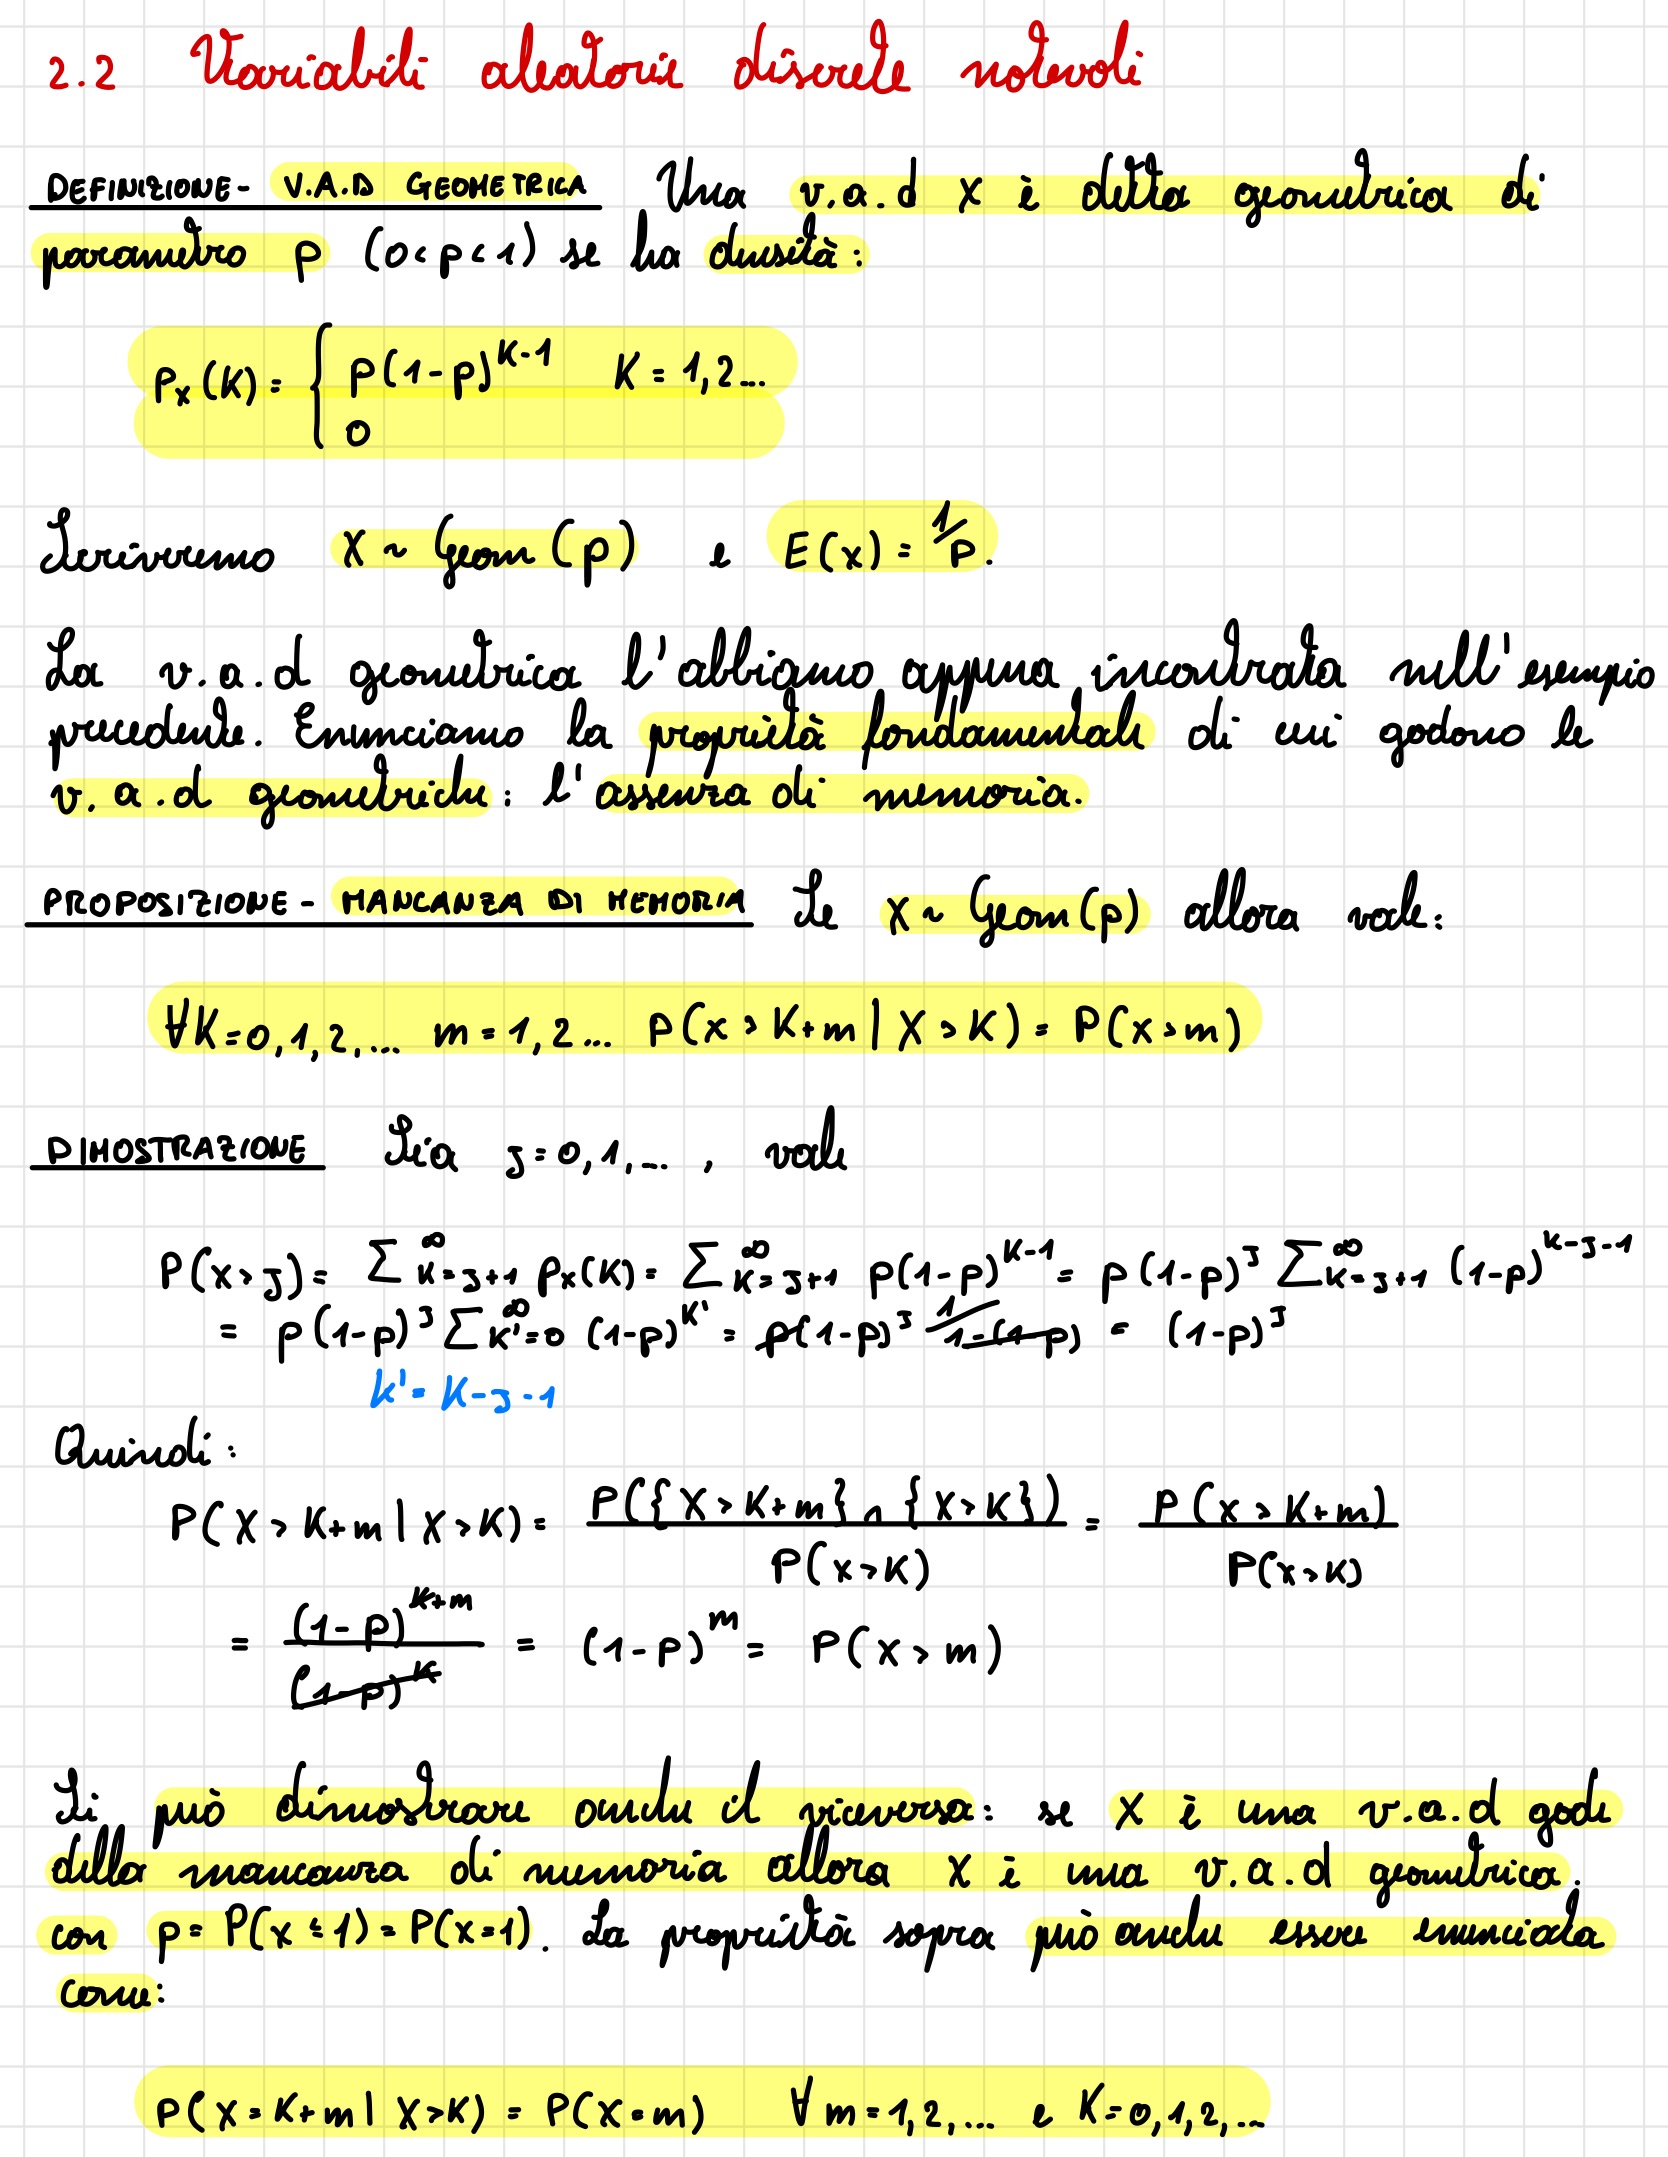 2.2 Variabili aleatorie discrete notevoli
DEFINIZIONE - V.A.D GEOMETRICA Una v.a.d X è detta geometrica di
parametro p (0<p<1) se ha densità:
Px(K) = { p(1-p)^{K-1} K = 1,2...
0
Scriveremo X ~ Geom(p) e E(x) = 1/p.
La v.a.d geometrica l'abbiamo appena incontrata nell'esempio
precedente. Enunciamo la proprietà fondamentale di cui godono le
v.a.d geometriche: l'assenza di memoria.
PROPOSIZIONE - MANCANZA DI MEMORIA Se X ~ Geom(p) allora vale:
∀K=0,1,2,... m=1,2... P(x>K+m | X>K) = P(x>m)
DIMOSTRAZIONE Sia J=0,1,..., vale
P(x>J) = ∑_{K=J+1}^{∞} px(K) = ∑_{K=J+1}^{∞} p(1-p)^{K-1} = p(1-p)^J ∑_{K=J+1}^{∞} (1-p)^{K-J-1}
= p(1-p)^J ∑_{K'=0}^{∞} (1-p)^{K'} = p(1-p)^J 1/1-(1-p) = (1-p)^J
K' = K-J-1
Quindi:
P(X>K+m | X>K) = P({X>K+m} ∩ {X>K}) / P(x>K) = P(x>K+m) / P(x>K)
= (1-p)^{K+m} / (1-p)^K = (1-p)^m = P(X>m)
Si può dimostrare anche il viceversa: se X è una v.a.d gode
della mancanza di memoria allora X è una v.a.d geometrica.
con p = P(x≤1) = P(X=1). La proprietà sopra può anche essere enunciata
come:
P(X=K+m | X>K) = P(X=m) ∀m=1,2,... e K=0,1,2,...